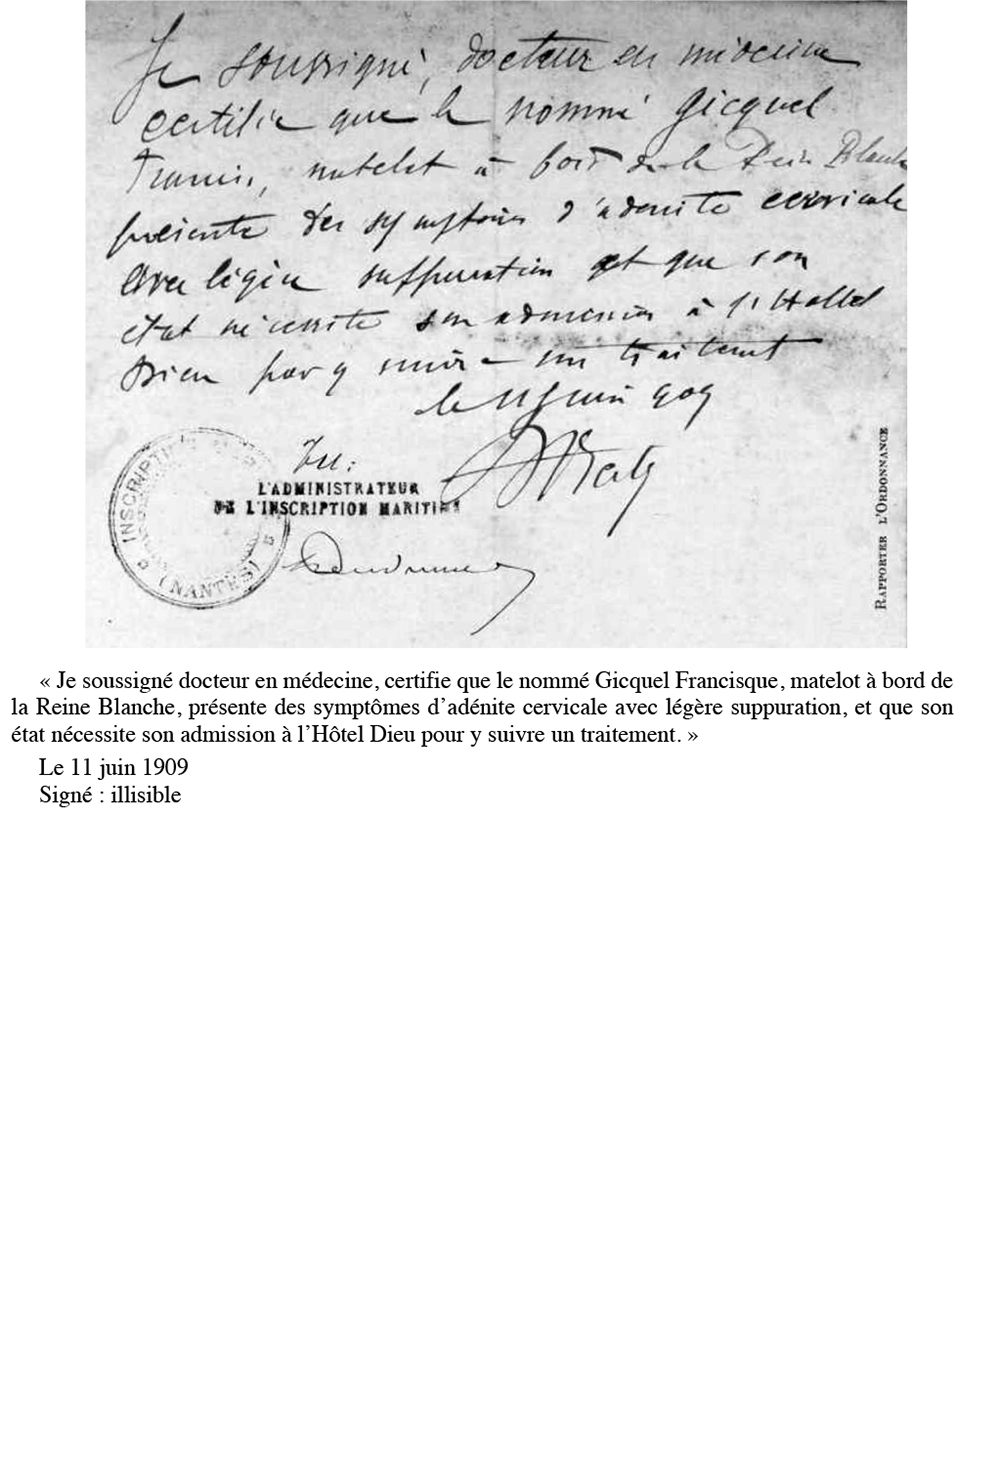 Je soussigné, docteur en médecine
certifie que le nommé Gicquel
Francis, matelot à bord de la Reine Blanche
présente des symptômes d'adénite cervicale
avec légère suppuration et que son
état nécessite son admission à l'Hottel
Dieu pour y suivre un traitement
le 11 juin 909
Vu:
L'ADMINISTRATEUR
DE L'INSCRIPTION MARITIME
INSCRIPTION
(NANTES)
RAPPORTER L'ORDONNANCE
« Je soussigné docteur en médecine, certifie que le nommé Gicquel Francisque, matelot à bord de
la Reine Blanche, présente des symptômes d’adénite cervicale avec légère suppuration, et que son
état nécessite son admission à l’Hôtel Dieu pour y suivre un traitement. »
Le 11 juin 1909
Signé : illisible